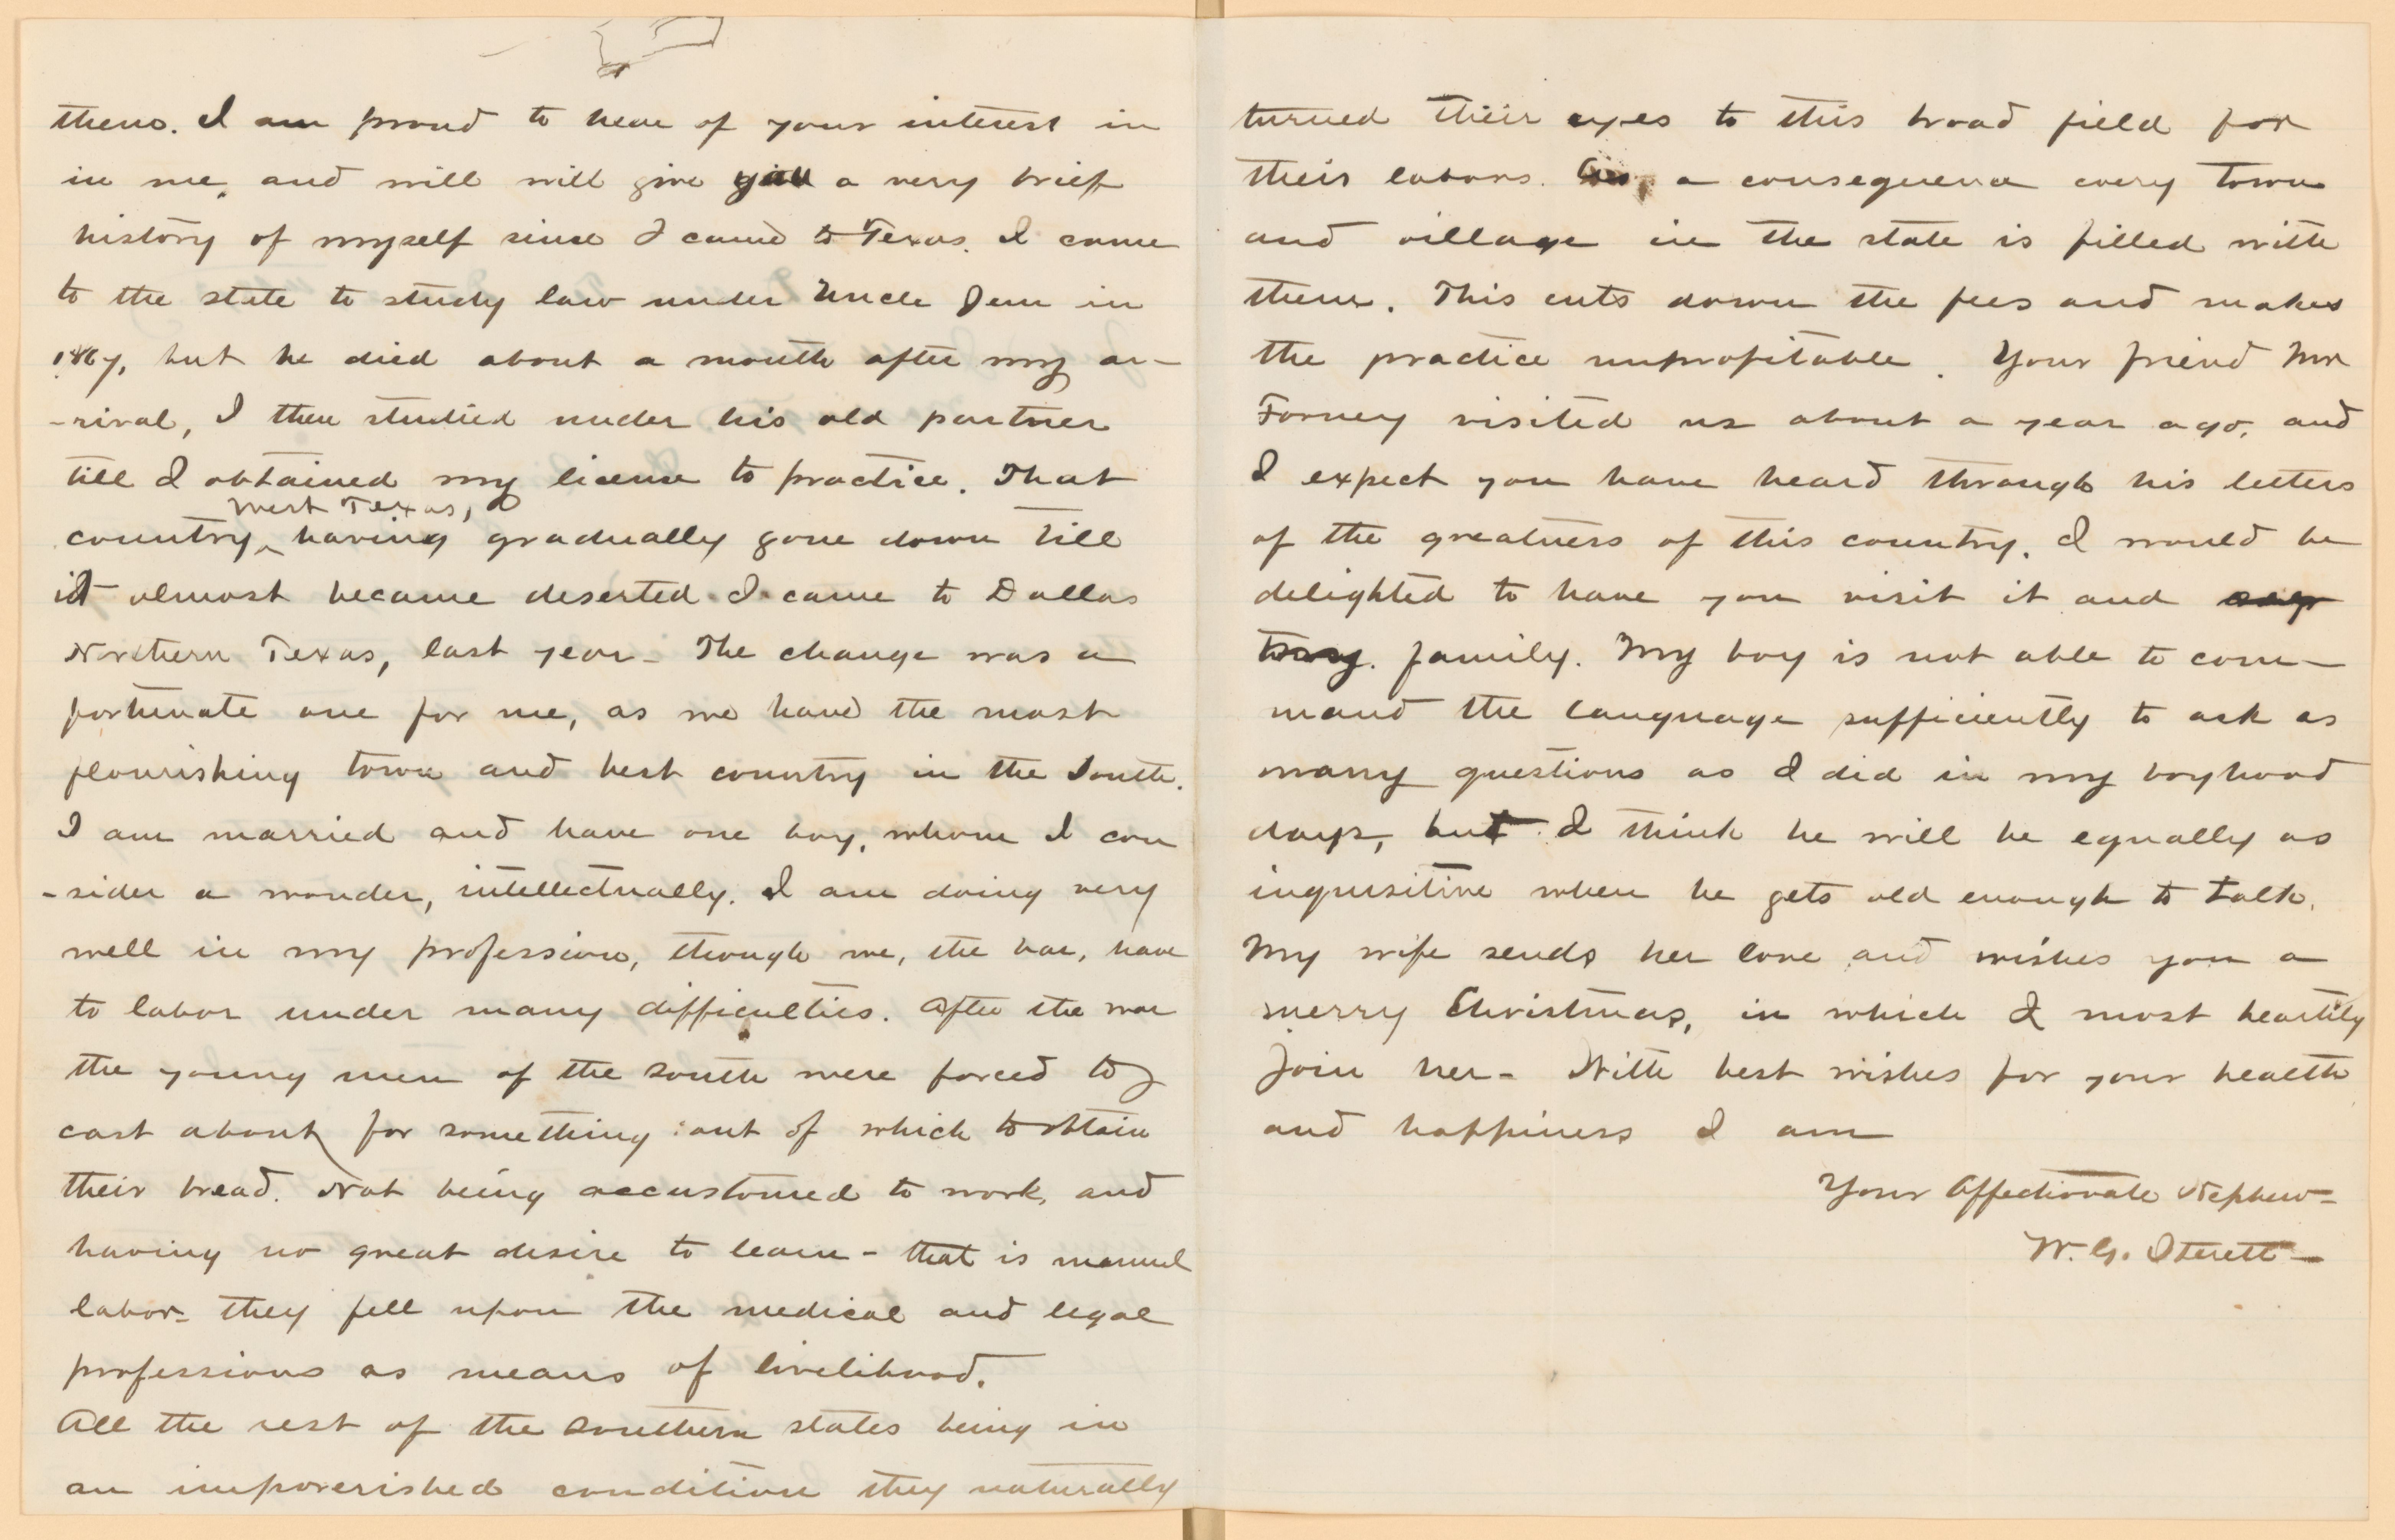 them. I am proud to hear of your interest in
in me, and will will give you a very brief
history of myself since I came to Texas. I came
to the state to study law under Uncle Jem in
1867, but he died about a month after my ar-
-rival, I then studied under his old partner
till I obtained my license to practice. That
West Texas,
country, having gradually gone down till
it almost became deserted. I came to Dallas
Northern Texas, last year - The change was a
fortunate one for me, as we have the most
flourishing town and best country in the South.
I am married and have one boy, whom I con
-sider a wonder, intellectually. I am doing very
well in my profession, though we, the bar, have
to labor under many difficulties. After the war
the young men of the south were forced to
cast about for something out of which to obtain
their bread. Not being accustomed to work, and
having no great desire to learn - that is manuel
labor - they fell upon the medical and legal
professions as means of livelihood.
All the rest of the southern states being in
an impoverished condition they naturally
turned their eyes to this broad field for
their labors. As a consequence every town
and village in the state is filled with
them. This cuts down the fees and makes
the practice unprofitable. Your friend Mr
Forney visited us about a year ago, and
I expect you have heard through his letters
of the greatness of this country. I would be
delighted to have you visit it and
my family. My boy is not able to com-
mand the language sufficiently to ask as
many questions as I did in my boyhood
days, but I think he will be equally as
inquisitive when he gets old enough to talk.
My wife sends her love and wishes you a
merry Christmas, in which I most heartily
join her - With best wishes for your health
and happiness I am
Your Affectionate Nephew -
W. G. Sterett -